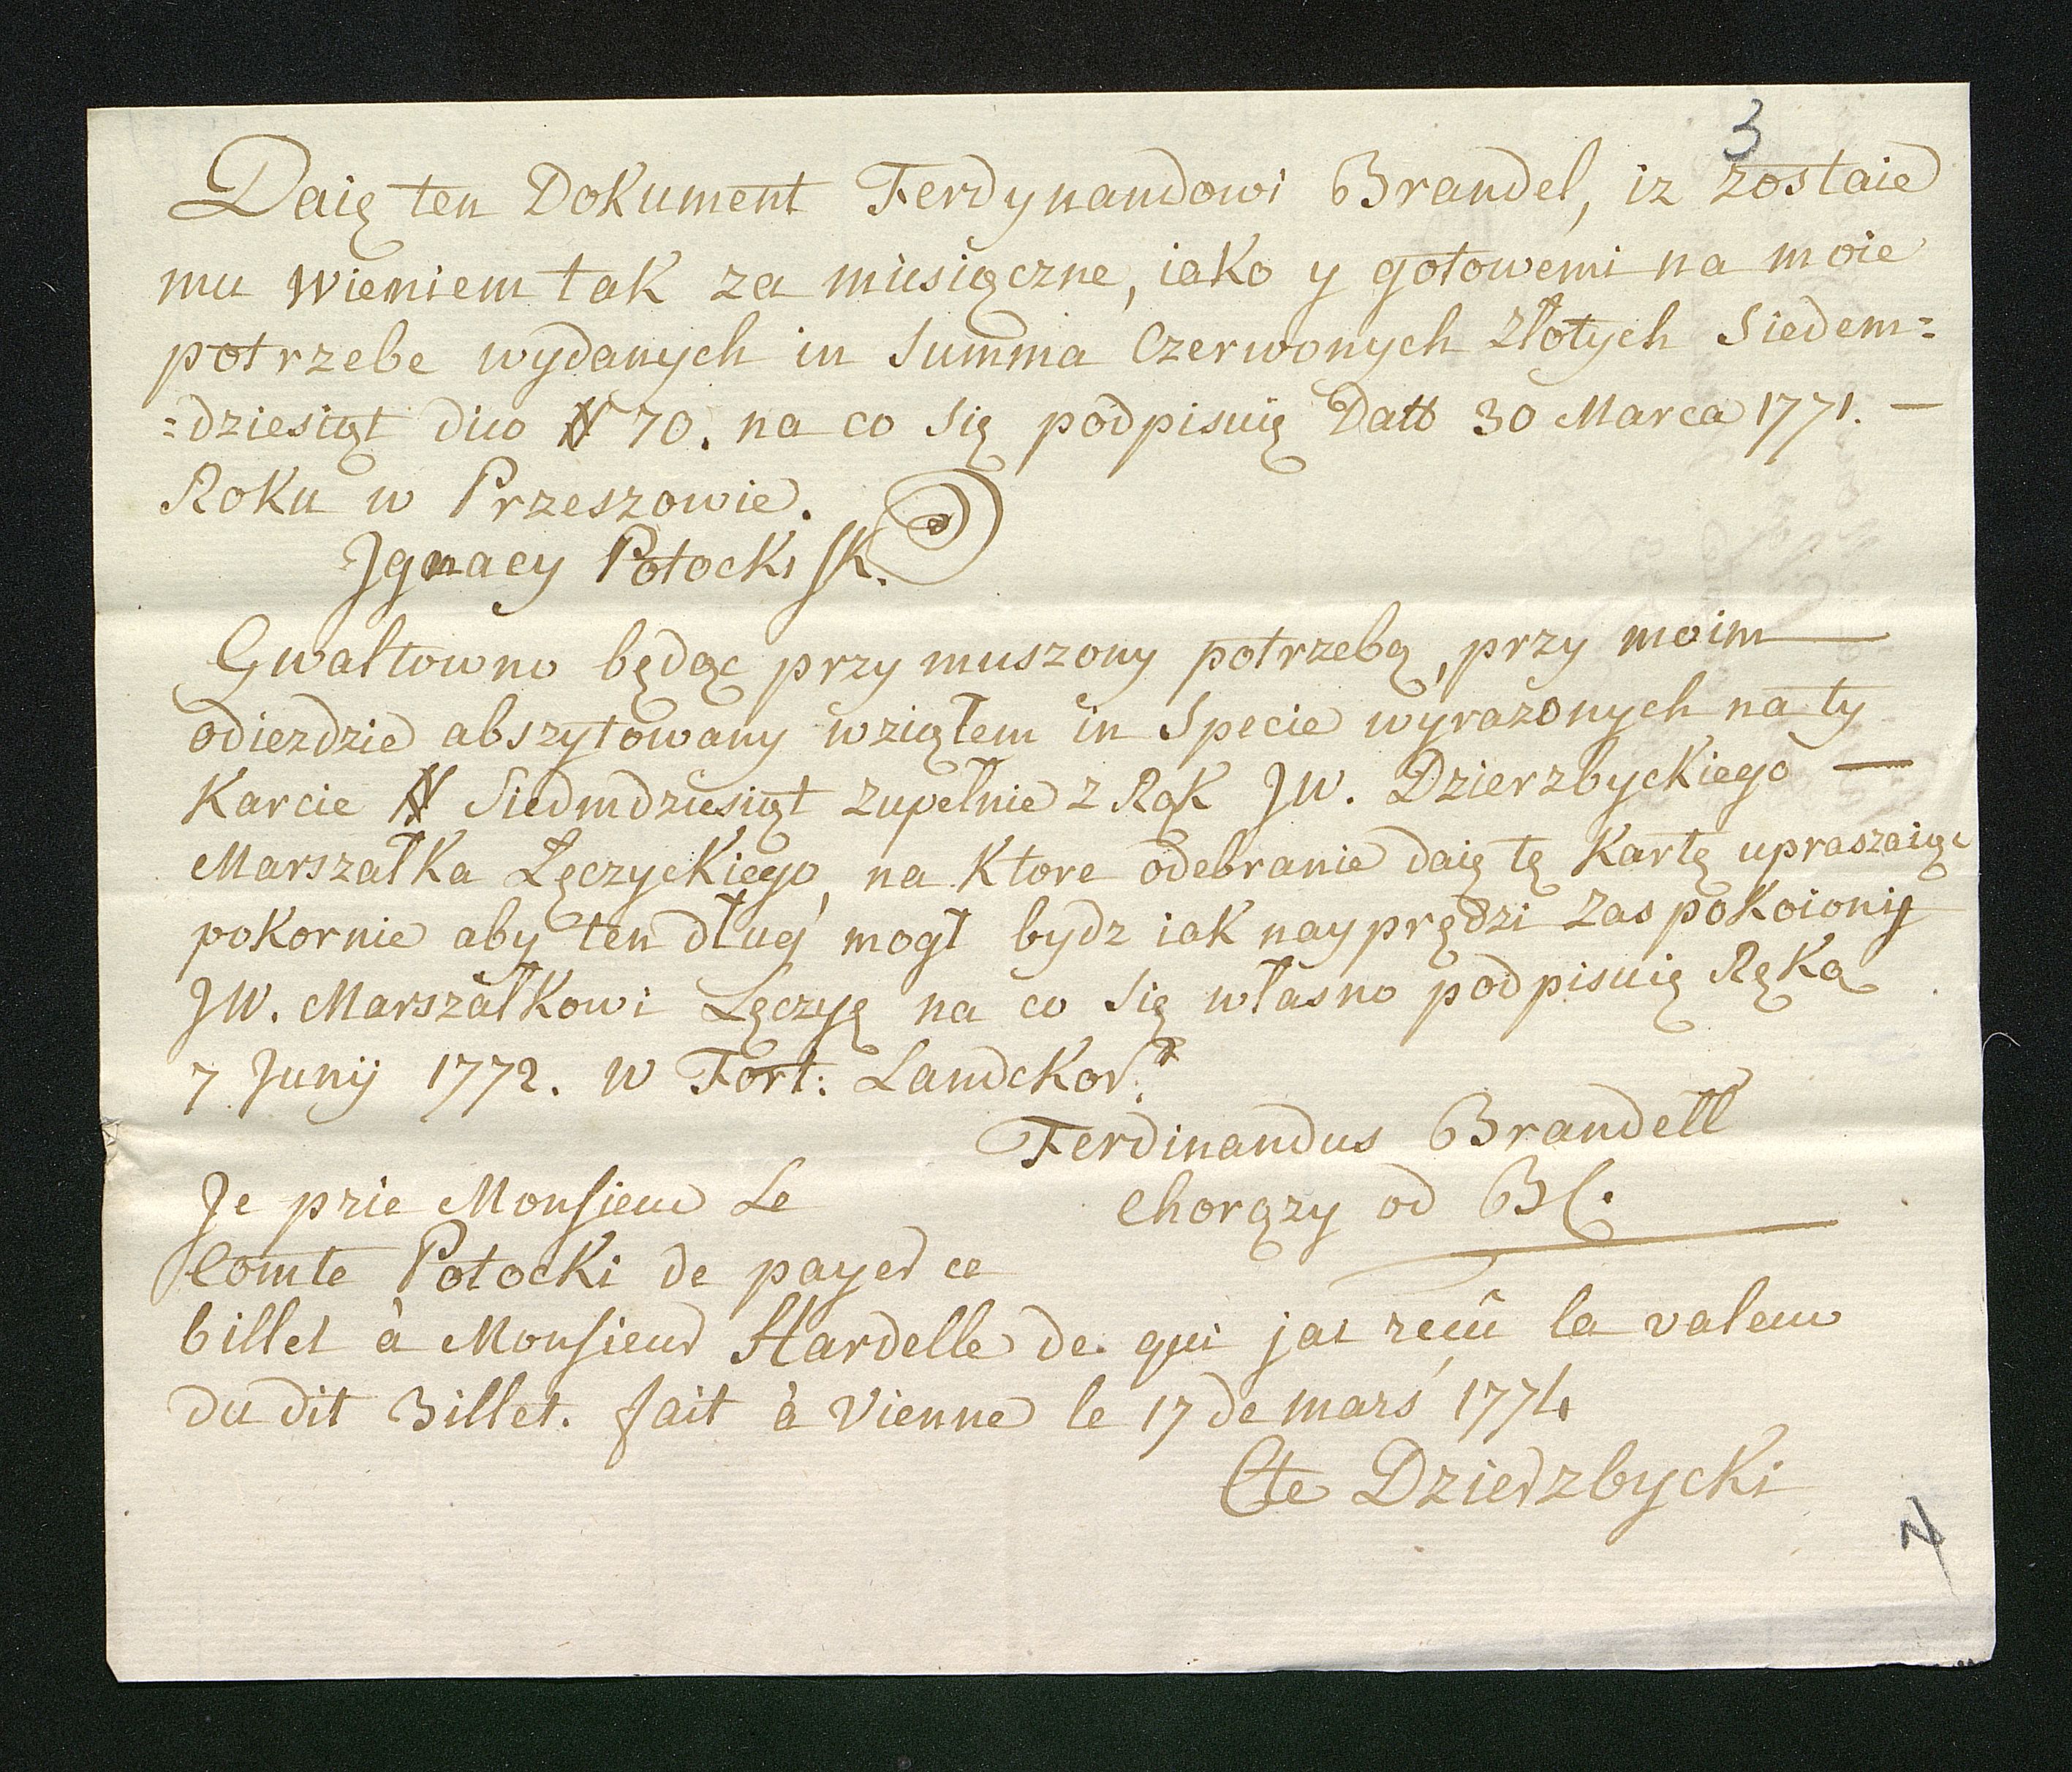 3
Daię ten Dokument Ferdynandowi Brandel, iz zostaie
mu Wieniem tak za miesięczne, iako y gotowemi na moie
potrzebe wydanych in Summa Czerwonych Złotych Siedem=
=dziesiąt dico # 70. na co się podpisuię Datt 30 Marca 1771. —
Roku w Przeszowie.
Jgnacy Potocki SK.
Gwałtowno będąc przymuszony potrzebą, przy moim
odiezdzie abszytowany wziąłem in Specie wyrazonych na ty
Karcie # Siedmdziesiąt zupełnie z Rąk JW. Dzierzbyckiego —
Marszałka Łęczyckiego, na Ktore odebranie daię tę Kartę upraszaiąc
pokornie aby ten dług mogł bydz iak nayprędzi zaspokoiony
JW. Marszałkowi Łęczyę na co się własno podpisuię Ręką
7 Junij 1772. w Fort: Landckor:
Ferdinandus Brandell
Chorązy od
Je prie Monsieur Le
Comte Potocki de payer ce
billet à Monsieur Hardelle de qui jai reçû la valeur
du dit Billet. fait à Vienne le 17 de mars 1774
Cte Dzierzbycki